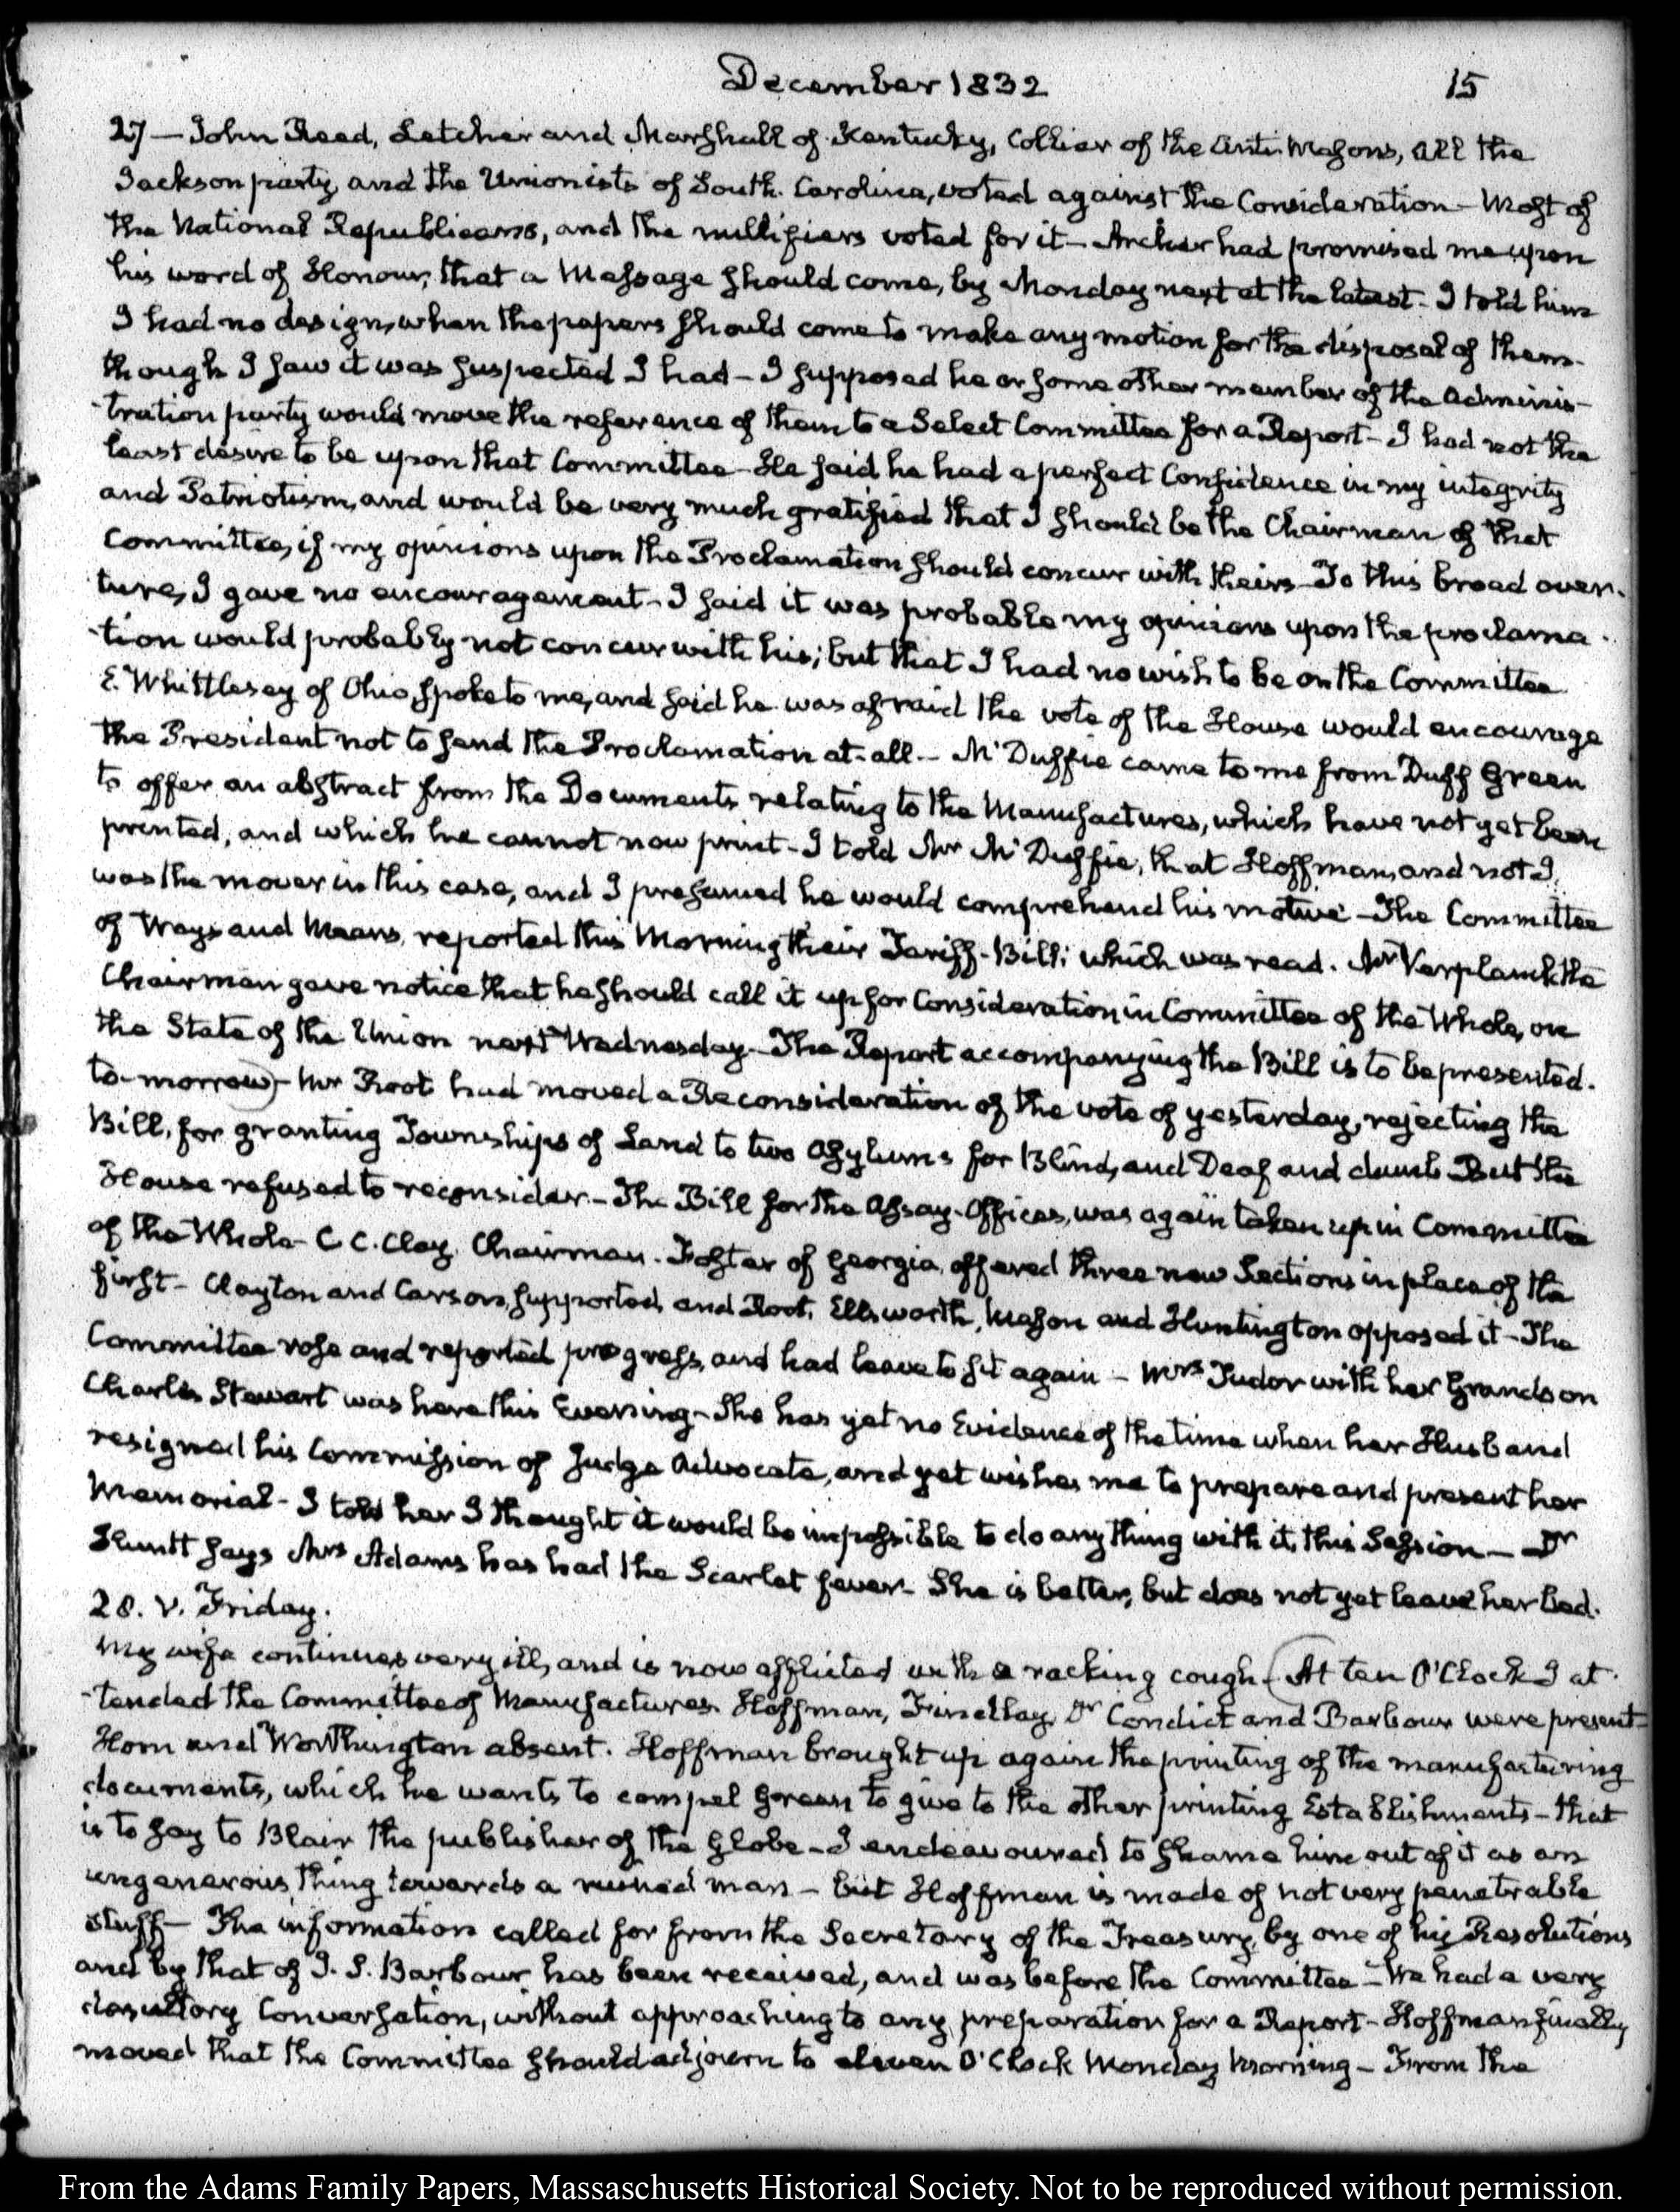 December 1832
15
27 — John Reed, Letcher and Marshall of Kentucky, Collier of the Anti Masons, all the
Jackson party, and the Unionists of South Carolina, voted against the Consideration — Most of
the National Republicans, and the nullifiers voted for it — Archer had promised me upon
his word of Honour, that a Message should come, by Monday next at the latest. I told him
I had no design, when the papers should come to make any motion for the disposal of them—
though I saw it was suspected I had — I supposed he or some other member of the Adminis-
-tration party would move the reference of them to a Select Committee for a Report — I had not the
least desire to be upon that Committee — He said he had a perfect Confidence in my integrity
and Patriotism, and would be very much gratified that I should be the Chairman of that
Committee, if my opinions upon the Proclamation should concur with theirs — To this broad over-
ture, I gave no encouragement — I said it was probable my opinions upon the proclama-
-tion would probably not concur with his; but that I had no wish to be on the Committee
E. Whittlesey of Ohio, spoke to me, and said he was afraid the vote of the House would encourage
the President not to send the Proclamation at-all — Mc Duffie came to me from Duff Green
to offer an abstract from the Documents relating to the Manufactures, which have not yet been
printed, and which he cannot now print — I told Mr Mc Duffie, that Hoffman, and not I,
was the mover in this case, and I presumed he would comprehend his motive — The Committee
of Ways and Means, reported this Morning their Tariff-Bill; which was read. Mr Verplanck the
Chairman gave notice that he should call it up for Consideration, in Committee of the Whole, on
the State of the Union next Wednesday — The Report accompanying the Bill is to be presented
to-morrow) — Mr Root had moved a Reconsideration of the vote of yesterday, rejecting the
Bill, for granting Townships of Land to two Asylums for Blind, and Deaf and dumb But the
House refused to reconsider — The Bill for the Assay-Offices, was again taken up in Committee
of the Whole — C. C. Clay, Chairman. Foster of Georgia, offered three new Sections in place of the
first — Clayton and Carson, supported, and Root, Ellsworth, Mason and Huntington opposed it — The
Committee rose and reported progress, and had leave to sit again — Mrs Tudor with her Grandson
Charles Stewart was here this Evening — She has yet no Evidence of the time when her Husband
resigned his Commission of Judge Advocate, and yet wishes me to prepare and present her
Memorial — I told her I thought it would be impossible to do any thing with it, this Session — Dr
Huntt says Mrs Adams has had the Scarlet fever — She is better, but does not yet leave her bed.
28. V. Friday.
My wife continues very ill, and is now afflicted with a racking cough — (At ten O'Clock I at-
-tended the Committee of Manufactures. Hoffman, Findlay, Dr Condict and Barbour were present —
Horn and Worthington absent. Hoffman brought up again the printing of the manufacturing
documents, which he wants to compel Green to give to the other printing Establishments — that
is to say to Blair the publisher of the Globe — I endeavoured to shame him out of it as an
ungenerous thing towards a ruined man — but Hoffman is made of not very penetrable
stuff — The information called for from the Secretary of the Treasury, by one of his Resolutions
and by that of J. S. Barbour, has been received, and was before the Committee — We had a very
desultory Conversation, without approaching to any preparation for a Report — Hoffman finally
moved that the Committee should adjourn to eleven O'Clock Monday Morning — From the
From the Adams Family Papers, Massachusetts Historical Society. Not to be reproduced without permission.